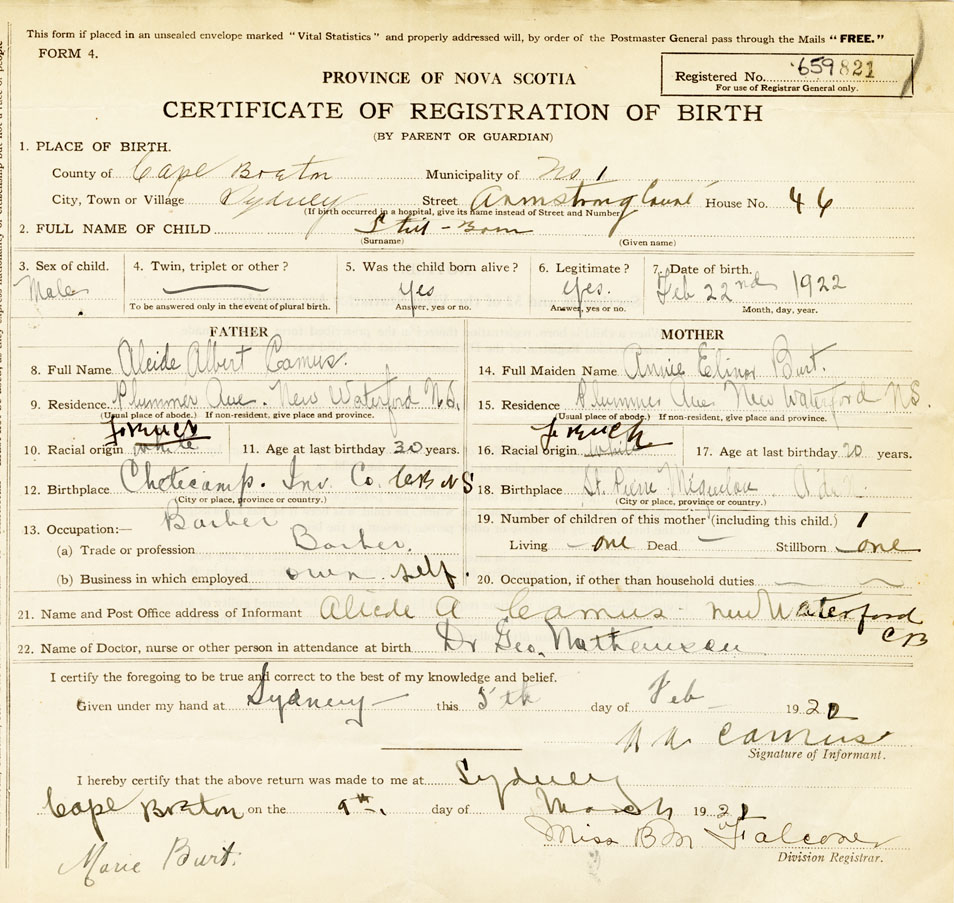 This form if placed in an unsealed envelope marked "Vital Statistics" and properly addressed will, by order of the Postmaster General pass through the Mails "FREE."
FORM 4.
PROVINCE OF NOVA SCOTIA
Registered No. 659821
For use of Registrar General only.
CERTIFICATE OF REGISTRATION OF BIRTH
(BY PARENT OR GUARDIAN)
1. PLACE OF BIRTH.
County of Cape Breton Municipality of No 1
City, Town or Village Sydney Street Armstrong House No. 46
(If birth occurred in a hospital, give its name instead of Street and Number)
2. FULL NAME OF CHILD Still-Born
(Surname) (Given name)
3. Sex of child. 4. Twin, triplet or other? 5. Was the child born alive? 6. Legitimate? 7. Date of birth.
Male yes yes. Feb 22nd 1922
To be answered only in the event of plural birth. Answer, yes or no. Answer, yes or no. Month, day, year.
FATHER MOTHER
8. Full Name Alcide Albert Camus. 14. Full Maiden Name Annie Elinor Burt.
9. Residence Plummer Ave. New Waterford N.S. 15. Residence Plummer Ave New Waterford NS.
(Usual place of abode.) If non-resident, give place and province. (Usual place of abode.) If non-resident, give place and province.
French French
10. Racial origin white 11. Age at last birthday 30 years. 16. Racial origin white 17. Age at last birthday 20 years.
12. Birthplace Chetecamp. Inv. Co. CB NS 18. Birthplace St. Pierre Miquelon.
(City or place, province or country.) (City or place, province or country.)
13. Occupation:— Barber 19. Number of children of this mother (including this child.) 1
(a) Trade or profession Barber. Living one Dead — Stillborn one
(b) Business in which employed own self. 20. Occupation, if other than household duties
21. Name and Post Office address of Informant Alcide A Camus New Waterford
CB
22. Name of Doctor, nurse or other person in attendance at birth Dr Geo.
I certify the foregoing to be true and correct to the best of my knowledge and belief.
Given under my hand at Sydney this 5th day of Feb 1922
A A Camus
Signature of Informant.
I hereby certify that the above return was made to me at Sydney
Cape Breton on the 9th. day of March 192
Miss B M Falconer
Division Registrar.
Marie Burt.